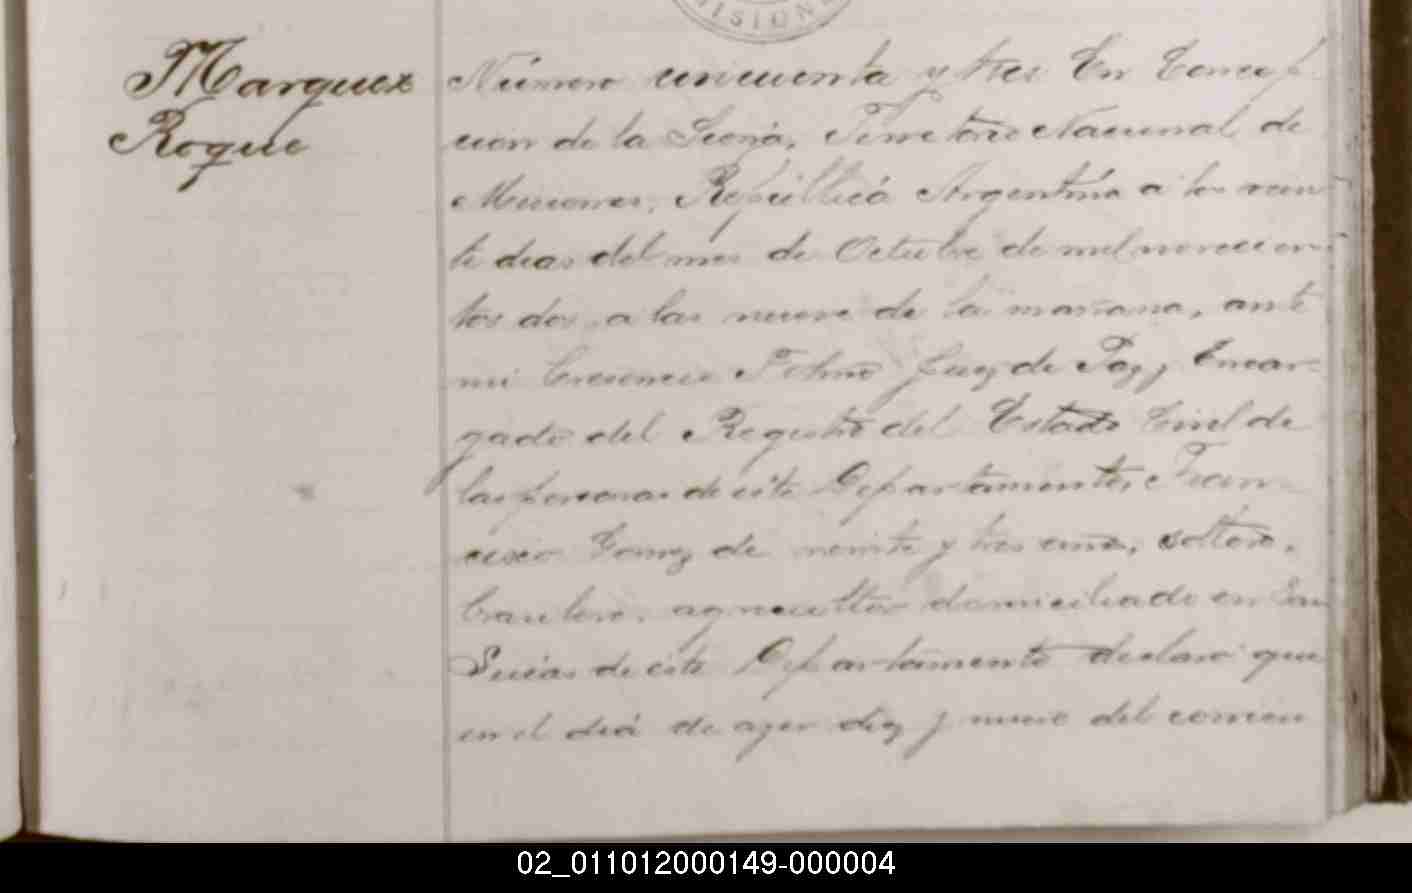 MISIONE
Marquez
Roque
Número cincuenta y tres En Concep
cion de la Sierra, Territorio Nacional de
Misiones, República Argentina a los vein
te dias del mes de Octubre de mil novecien
tos dos, a las nueve de la mañana, ante
mi Juez de Paz, Encar-
gado del Registro del Estado Civil de
las personas de este Departamento, Fran
cisco Gomez de veinte y tres años, soltero,
brasilero, agricultor domiciliado en San
Lucas de este Departamento declaró que
en el diá de ayer diez y nueve del corrien
02_011012000149-000004